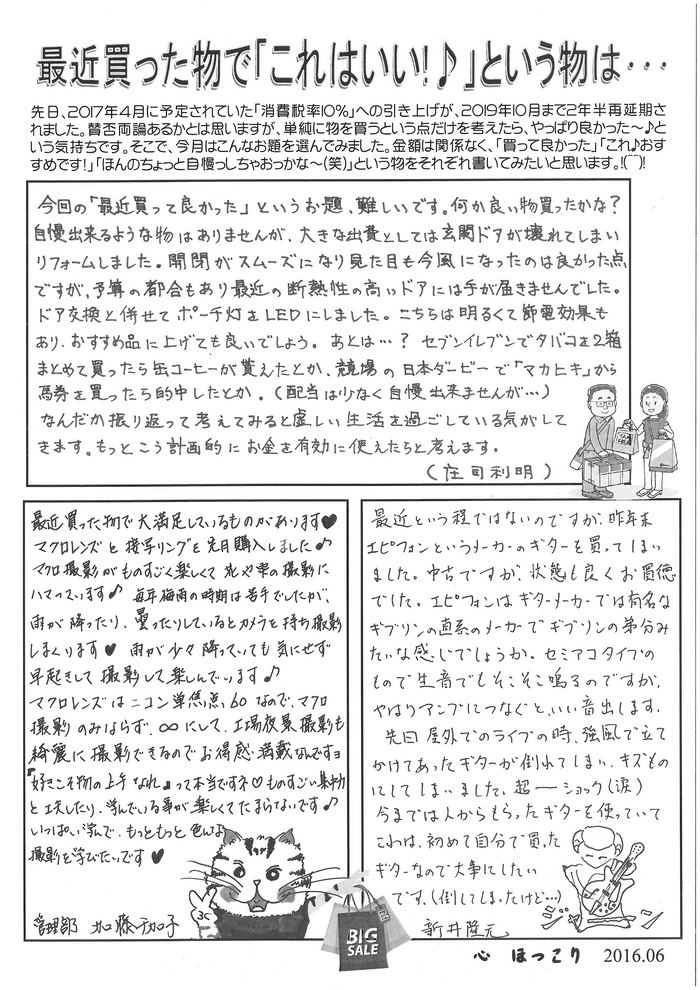 最近買った物で「これはいい!♪」という物は・・・
先日、2017年4月に予定されていた「消費税率10%」への引き上げが、2019年10月まで2年半再延期さ
れました。賛否両論あるかとは思いますが、単純に物を買うという点だけを考えたら、やっぱり良かった～♪と
いう気持ちです。そこで、今月はこんなお題を選んでみました。金額は関係なく、「買って良かった」「これ♪おす
すめです!」「ほんのちょっと自慢っしちゃおっかな～(笑)」という物をそれぞれ書いてみたいと思います。!(⌒⌒)!
今回の「最近買って良かった」というお題、難しいです。何か良い物買ったかな?
自慢出来るような物はありませんが、大きな出費としては玄関ドアが壊れてしまい
リフォームしました。開閉がスムーズになり見た目も今風になったのは良かった点
ですが、予算の都合もあり最近の断熱性の高いドアには手が届きませんでした。
ドア交換と併せてポーチ灯をLEDにしました。こちらは明るくて節電効果も
あり、おすすめ品に上げても良いでしょう。あとは…? セブンイレブンでタバコを2箱
まとめて買ったら缶コーヒーが貰えたとか、競馬の日本ダービーで「マカヒキ」から
馬券を買ったら的中したとか。(配当は少なく自慢出来ませんが…)
なんだか振り返って考えてみると虚しい生活を過ごしている気がして
きます。もっとこう計画的にお金を有効に使えたらと考えます。
(庄司利明)
TAX FREE
最近買った物で大満足しているものがあります♥
マクロレンズと接写リングを先月購入しました♪
マクロ撮影がものすごく楽しくて花や雫の撮影に
ハマっています♪ 毎年梅雨の時期は苦手でしたが、
雨が降ったり、曇ったりしているとカメラを持ち撮影
しまくります♥ 雨が少々降っていても気にせず
早起きして撮影して楽しんでいます♪
マクロレンズはニコン単焦点60なので、マクロ
撮影のみならず、∞にして、工場夜景撮影も
綺麗に撮影できるのでお得感満載なんですョ
『好きこそ物の上手なれ』って本当ですネ♡ものすごい集中力
と工夫したり、学んでいる事が楽しくてたまらないです♪
いっぱい学んで、もっともっと色んな
撮影を学びたいです♥
管理部 加藤千加子
最近という程ではないのですが、昨年末
エピフォンというメーカーのギターを買ってしまい
ました。中古ですが、状態も良くお買徳
でした。エピフォンはギターメーカーでは有名な
ギブソンの直系のメーカーでギブソンの弟分み
たいな感じでしょうか。セミアコタイプの
もので生音でもそこそこ鳴るのですが、
やはりアンプにつなぐと、いい音出します。
先日屋外でのライブの時、強風で立て
かけてあったギターが倒れてしまい、キズもの
にしてしまいました、超ーショック(涙)
今までは人からもらったギターを使っていて
これは、初めて自分で買った
ギターなので大事にしたい
です、(倒してしまったけど…)
新井隆元
BIG
SALE
心 ほっこり 2016.06